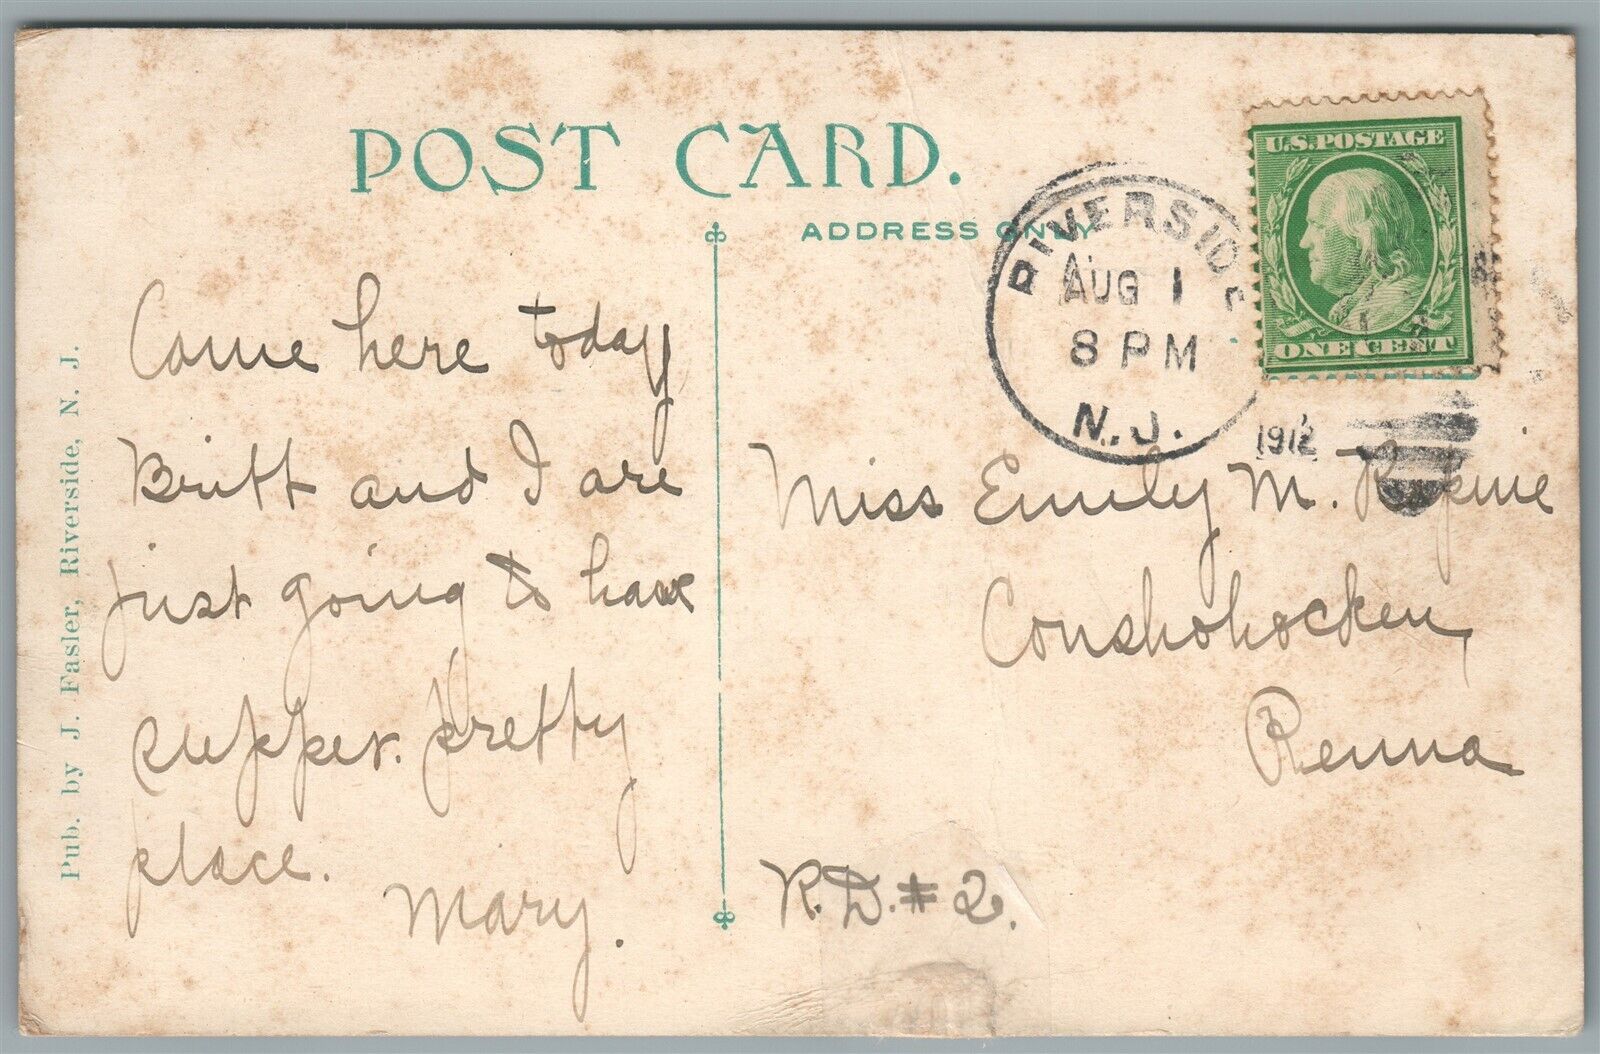 POST CARD.
ADDRESS ONLY
RIVERSIDE
AUG 1
8 PM
N.J.
1912
U.S.POSTAGE
ONE CENT
Came here today
Britt and I are
just going to have
supper. pretty
place.
Mary.
Miss Emily M.
Conshohocken,
Penna
R.D.#2.
Pub. by J. Fasler, Riverside, N. J.